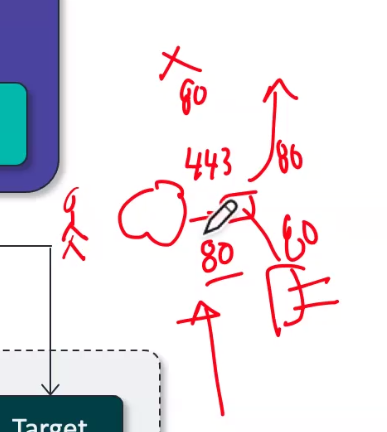 80
443
80
80
80
Target